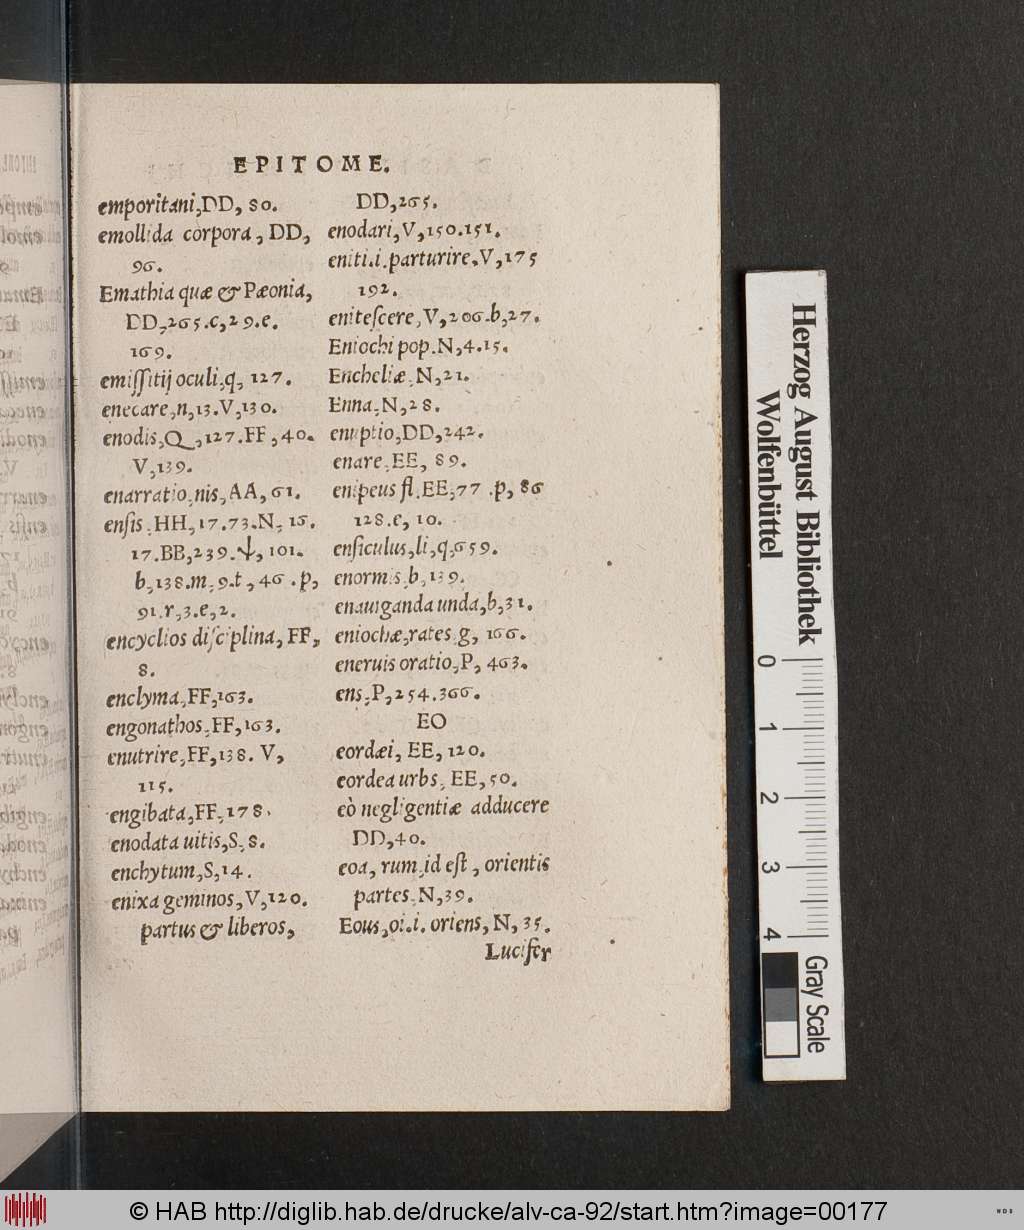 EPITOME.
emporitani,DD, 80.
emollida corpora, DD,
96.
Emathia quæ & Pæonia,
DD,265.c,29.e.
169.
emissitij oculi,q, 127.
enecare,n,13.V,130.
enodis,Q,127.FF,40.
V,139.
enarratio,nis,AA,61.
ensis,HH,17.73.N,15.
17.BB,239.🜃,101.
b,138.m,9.t,46.p,
91.r,3.e,2.
encyclios disciplina, FF,
8.
enclyma,FF,163.
engonathos,FF,163.
enutrire,FF,138. V,
115.
engibata,FF,178.
enodata uitis,S,8.
enchytum,S,14.
enixa geminos,V,120.
partus & liberos,
DD,265.
enodari,V,150.151.
eniti.i.parturire,V,175
192.
enitescere,V,206.b,27.
Eniochi pop.N,4.15.
Encheliæ,N,21.
Enna,N,28.
enuptio,DD,242.
enare,EE, 89.
enipeus fl.EE,77 .p,86
128.e, 10.
ensiculus,li,q,659.
enormis,b,139.
enauiganda unda,b,31.
eniochæ,rates,g, 166.
eneruis oratio,P, 463.
ens,P,254.366.
EO
eordæi, EE, 120.
eordea urbs, EE,50.
eò negligentiæ adducere
DD,40.
eoa, rum,id est, orientis
partes,N,39.
Eous,oi.i. oriens, N, 35.
Lucifer
Herzog August Bibliothek
Wolfenbüttel
0
1
2
3
4
Gray Scale
© HAB http://diglib.hab.de/drucke/alv-ca-92/start.htm?image=00177